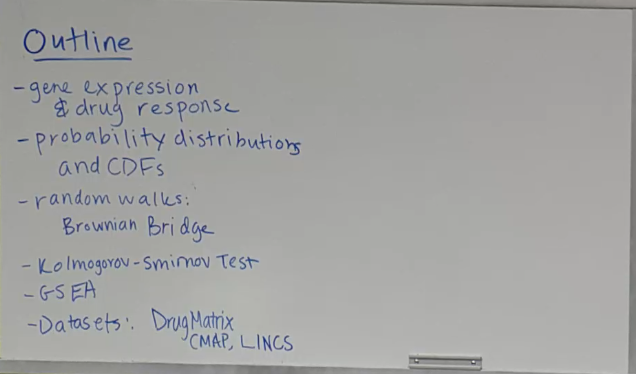 Outline
- gene expression
& drug response
- probability distributions
and CDFs
- random walks:
Brownian Bridge
- Kolmogorov-Smirnov Test
- GSEA
- Datasets: DrugMatrix
CMAP, LINCS